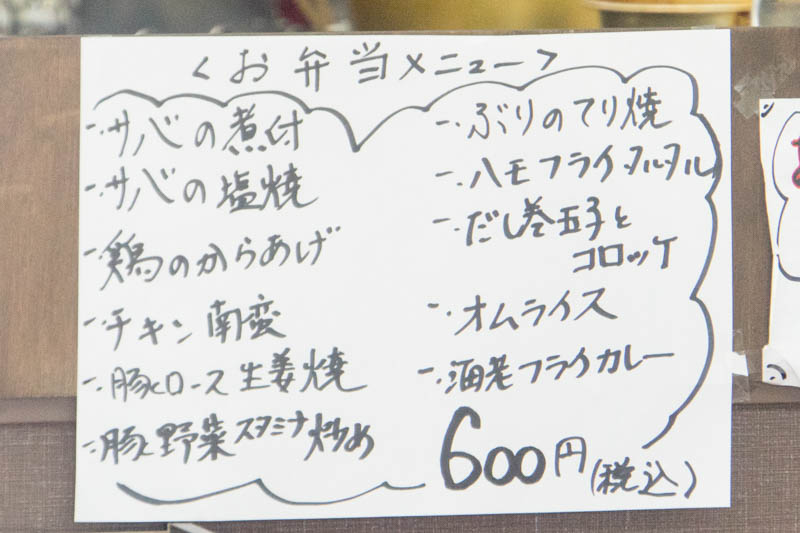 <お弁当メニュー>
-. サバの煮付
-. サバの塩焼
-. 鶏のからあげ
-. チキン南蛮
-. 豚ヒロース生姜焼
-. 豚と野菜スタミナ炒め
-. ぶりのてり焼
-. ハモフライタルタル
-. だし巻玉子と
コロッケ
-. オムライス
-. 海老フライカレー
600円(税込)